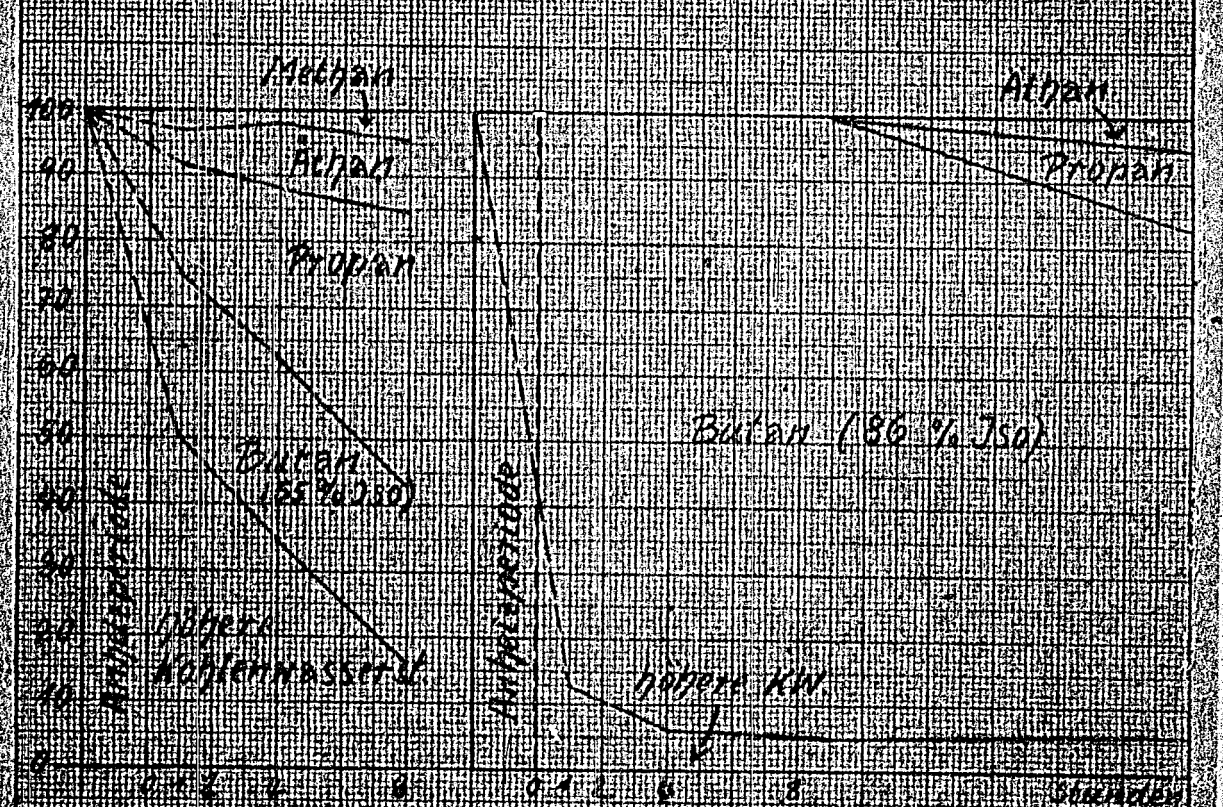 Methan
Äthan
Propan
Butan
(55 % Iso)
höhere
Kohlenwasserst.
Anheizperiode
100
90
80
70
60
50
40
30
20
10
0
0 1 2 4 6
Äthan
Propan
Butan (86 % Iso)
höhere KW.
Anheizperiode
0 1 2 6 8 Stunden